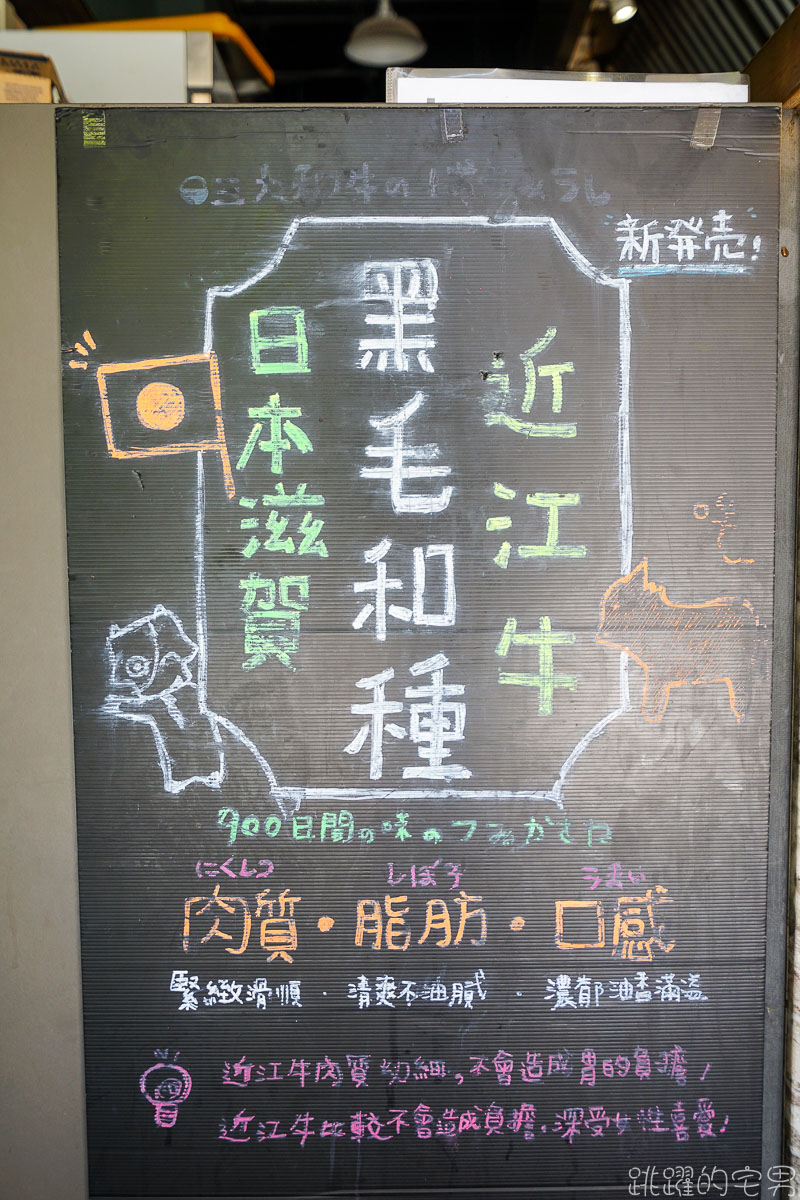 三大和牛の
新発売!
近江牛
黑毛和種
日本滋賀
900日間の味のつみかさね
にくしつ しぼう うまい
肉質・脂肪・口感
緊緻滑順・清爽不油膩・濃郁油香滿溢
近江牛肉質幼細,不會造成胃的負擔!
近江牛比較不會造成負擔,深受女性喜愛!
跳躍的宅男